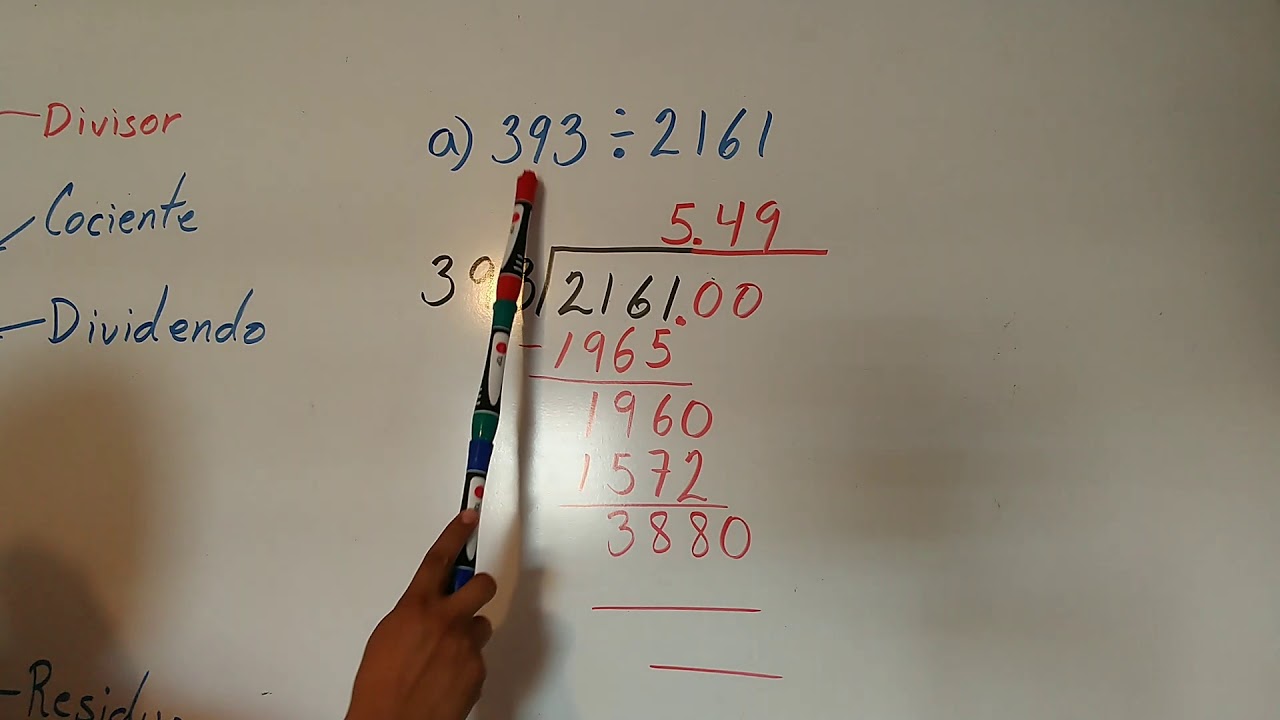 Divisor
Cociente
Dividendo
a) 393 ÷ 2161
5.49
393 2161.00
- 1965
1960
1572
3880